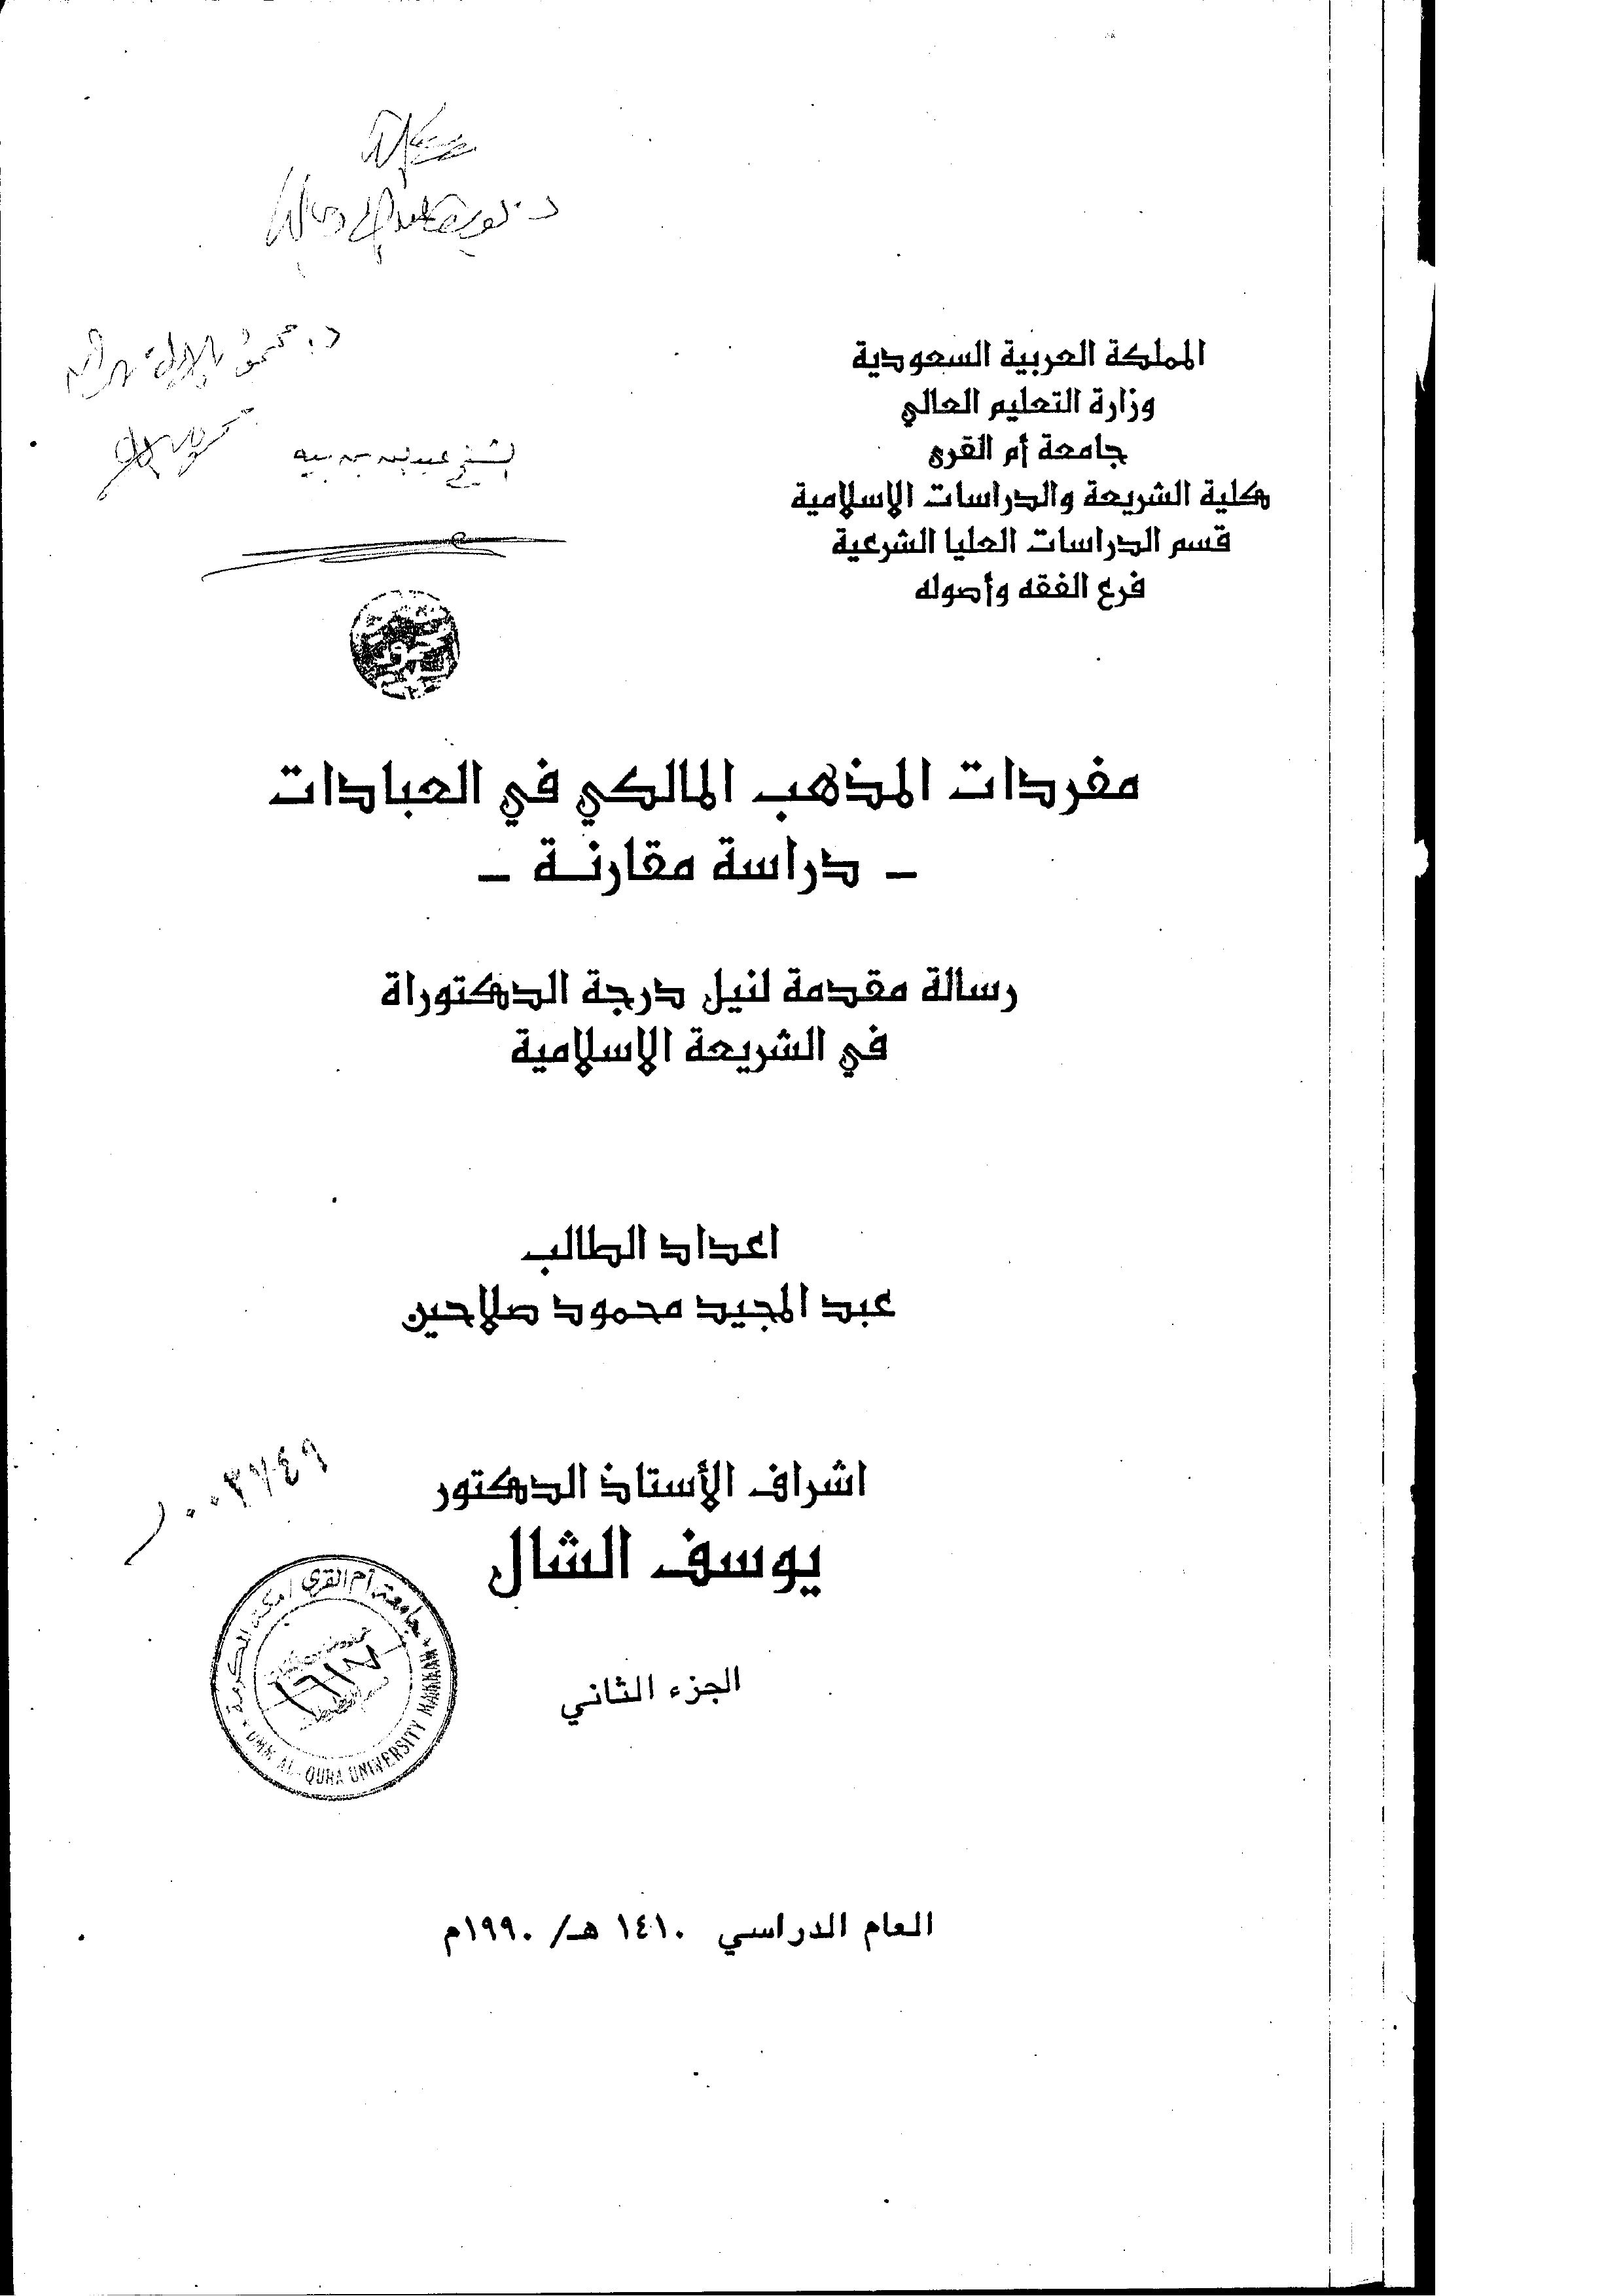 المملكة العربية السعودية
وزارة التعليم العالي
جامعة أم القرى
كلية الشريعة والدراسات الاسلامية
قسم الدراسات العليا الشرعية
فرع الفقه وأصوله
الشيخ عبد الله بن بيه
مفردات المذهب المالكي في العبادات
- دراسة مقارنـة -
رسالة مقدمة لنيل درجة الدكتوراة
في الشريعة الاسلامية
اعداد الطالب
عبد المجيد محمود صلاحين
اشراف الأستاذ الدكتور
يوسف الشال
٠٠٣٧٤٩
جامعة أم القرى / مكة المكرمة
UMM AL-QURA UNIVERSITY MAKKAH
الجزء الثاني
العام الدراسي ١٤١٠ هـ/ ١٩٩٠م